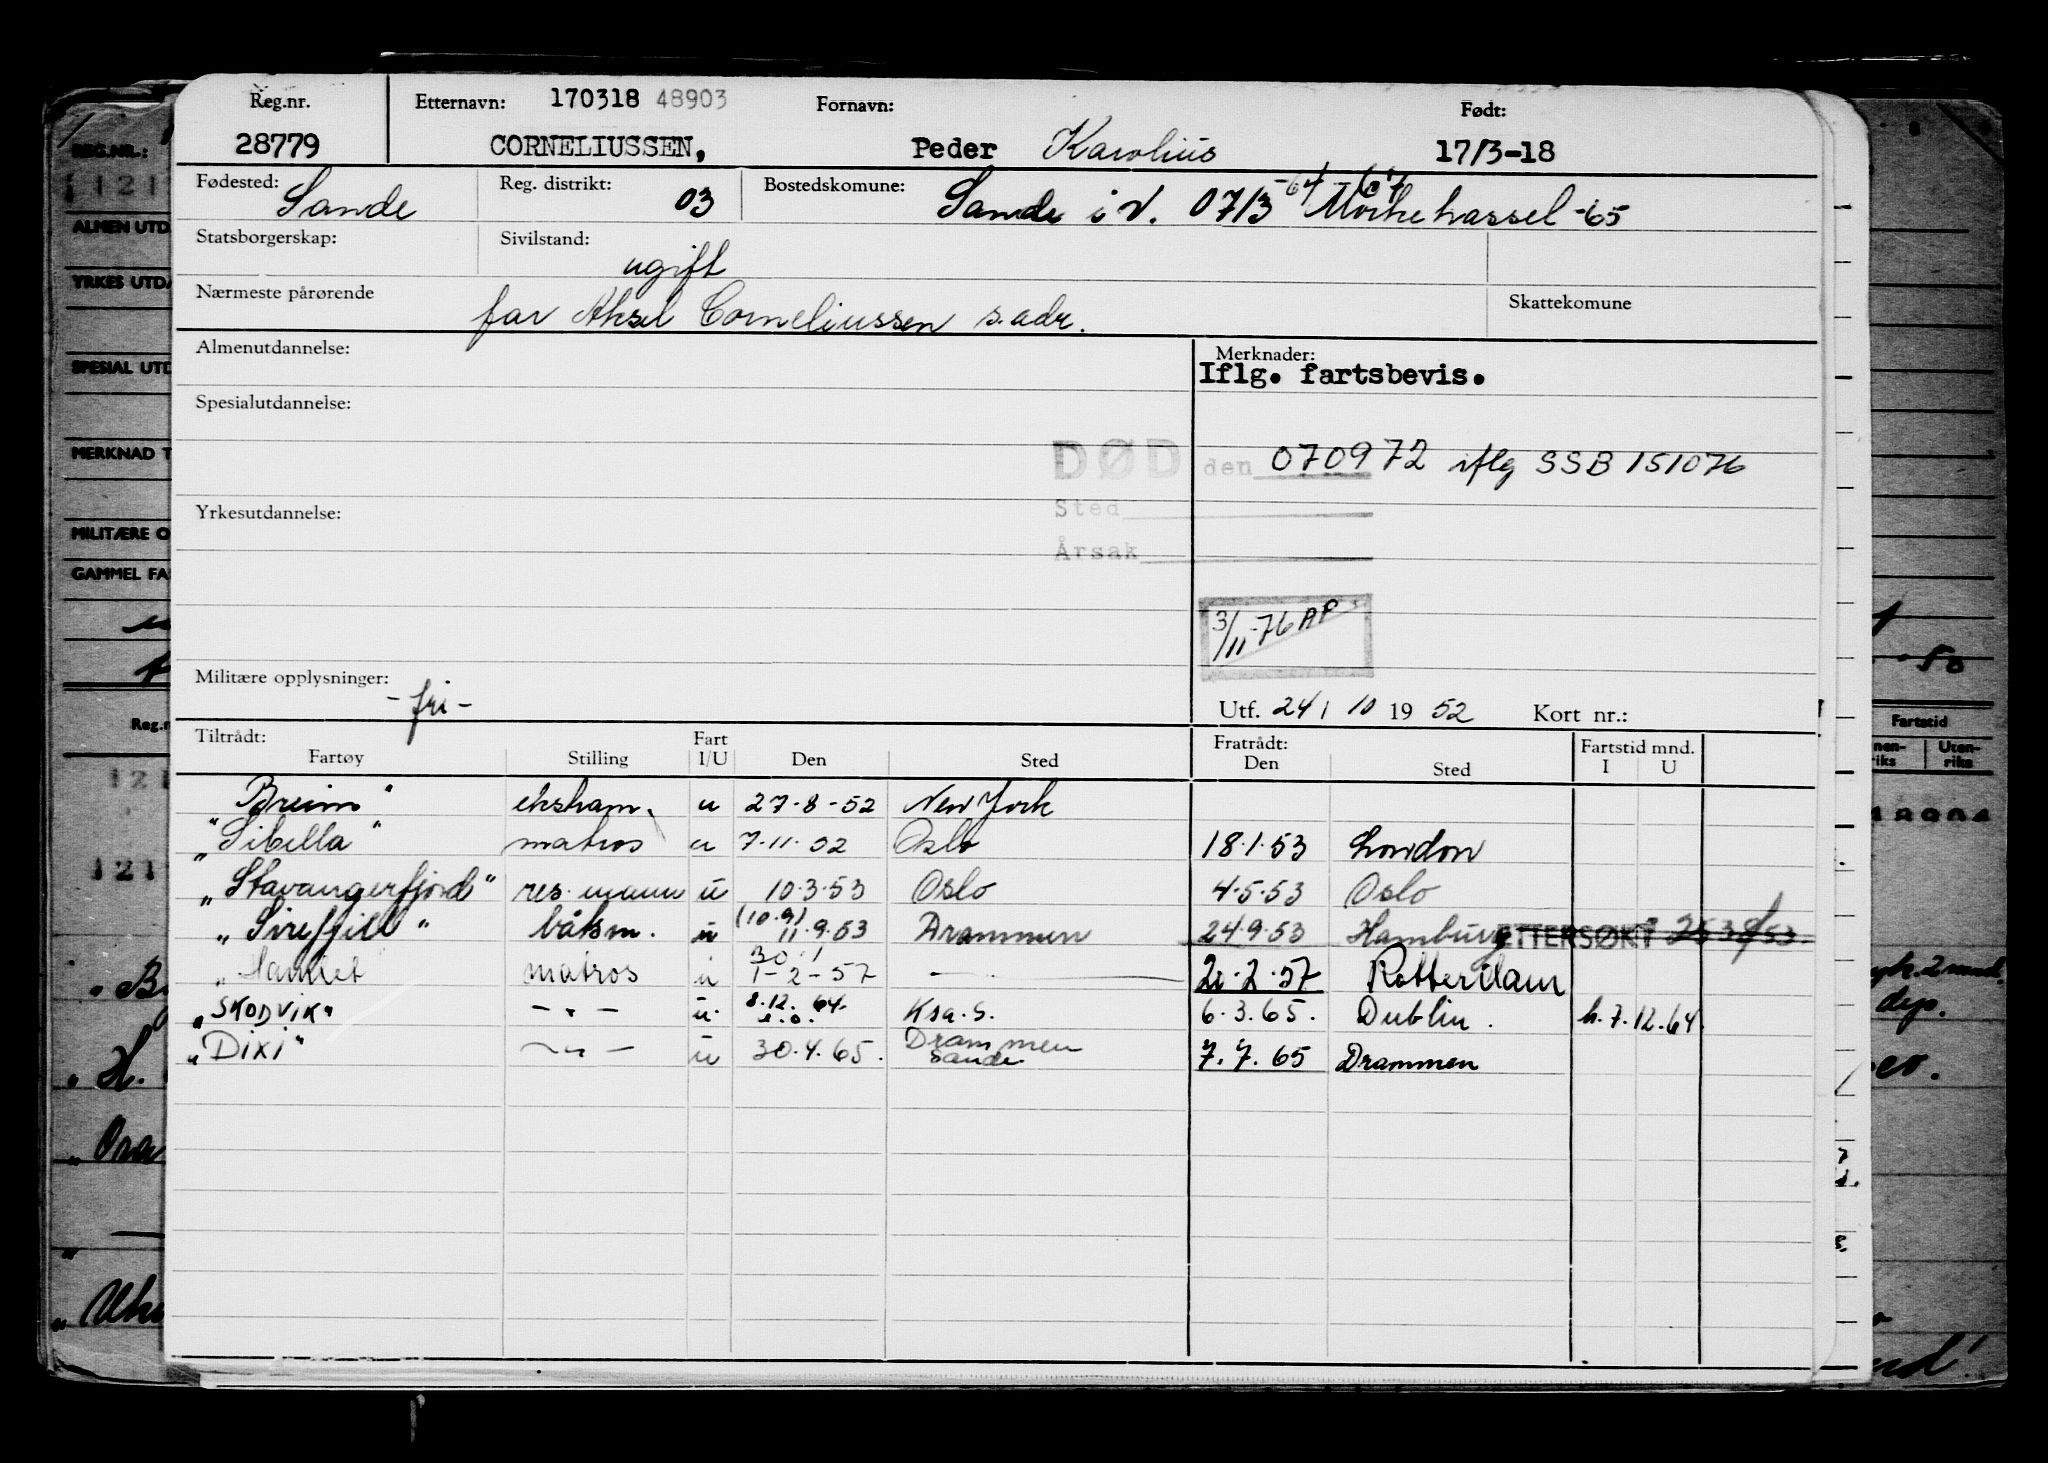 Reg.nr. Etternavn: 170318 48903 Fornavn: Født:
28779 CORNELIUSSEN, Peder Karolius 17/3-18
Fødested: Sande Reg. distrikt: 03 Bostedskomune: Sande i V. 0713 -64 -65
Statsborgerskap: Sivilstand: ugift
Nærmeste pårørende far Aksel Corneliussen s. adr. Skattekomune
Almenutdannelse: Merknader:
Iflg. fartsbevis.
Spesialutdannelse:
DØD den 070972 iflg SSB 151076
Sted
Yrkesutdannelse:
Årsak
3/11-76 AP
Militære opplysninger: -fri-
Utf. 24/10 1952 Kort nr.:
Tiltrådt: Fart Fratrådt: Fartstid mnd.
Fartøy Stilling I/U Den Sted Den Sted I U
"Breim" eksham. u 27-8-52 New York
"Sibella" matros u 7.11.52 Oslo 18.1.53 London
"Stavangerfjord" res. mann u 10.3.53 Oslo 4.5.53 Oslo
"Sirefjell" båtsm. u (10.9) 11.9.53 Drammen 24.9.53 Hamburg ETTERSØKT
matros u 30/1 1-2-57 — 21.2.57 Rotterdam
"SKODVIK" — " — u. 8.12.64 Ksa.S. 6.3.65. Dublin. h.7.12.64.
"Dixi" — " — u 30.4.65. Drammen Sande 7.7.65 Drammen
REG.NR.:
ALMEN UTD
YRKES UTDA
SPESIAL UTD
MERKNAD T
MILITÆRE O
GAMMEL FA
Reg.n
Fartstid
Uten-
riks